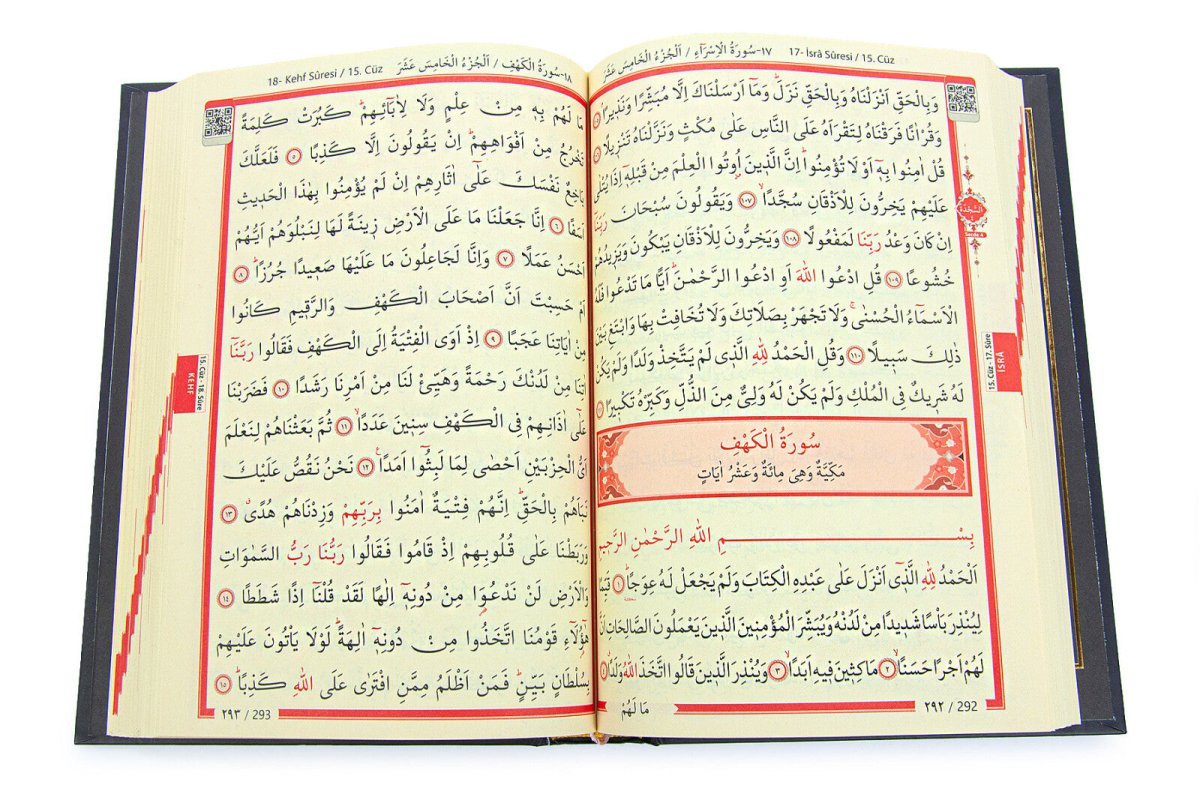 ١٧-سُورَةُ الْاِسْرَاءِ / اَلْجُزْءُ الْخَامِسَ عَشَرَ 17- İsrâ Sûresi / 15. Cüz
وَبِالْحَقِّ اَنْزَلْنَاهُ وَبِالْحَقِّ نَزَلَۜ وَمَٓا اَرْسَلْنَاكَ اِلَّا مُبَشِّرًا وَنَذ۪يرًاۢ
وَقُرْاٰنًا فَرَقْنَاهُ لِتَقْرَاَهُ عَلَى النَّاسِ عَلٰى مُكْثٍ وَنَزَّلْنَاهُ تَنْز۪يلًا
قُلْ اٰمِنُوا بِه۪ٓ اَوْ لَا تُؤْمِنُواۜ اِنَّ الَّذ۪ينَ اُو۫تُوا الْعِلْمَ مِنْ قَبْلِه۪ٓ اِذَا يُتْلٰى
عَلَيْهِمْ يَخِرُّونَ لِلْاَذْقَانِ سُجَّدًاۙ ﴿١٠٧﴾ وَيَقُولُونَ سُبْحَانَ رَبِّنَٓا
اِنْ كَانَ وَعْدُ رَبِّنَا لَمَفْعُولًا ﴿١٠٨﴾ وَيَخِرُّونَ لِلْاَذْقَانِ يَبْكُونَ وَيَز۪يدُهُمْ
خُشُوعًا ﴿١٠٩﴾ قُلِ ادْعُوا اللّٰهَ اَوِ ادْعُوا الرَّحْمٰنَۜ اَيًّا مَا تَدْعُوا فَلَهُ
الْاَسْمَٓاءُ الْحُسْنٰىۚ وَلَا تَجْهَرْ بِصَلَاتِكَ وَلَا تُخَافِتْ بِهَا وَابْتَغِ بَيْنَ
ذٰلِكَ سَب۪يلًا ﴿١١٠﴾ وَقُلِ الْحَمْدُ لِلّٰهِ الَّذ۪ي لَمْ يَتَّخِذْ وَلَدًا وَلَمْ يَكُنْ
لَهُ شَر۪يكٌ فِي الْمُلْكِ وَلَمْ يَكُنْ لَهُ وَلِيٌّ مِنَ الذُّلِّ وَكَبِّرْهُ تَكْب۪يرًا
سُورَةُ الْكَهْفِ
مَكِّيَّةٌ وَهِيَ مِائَةٌ وَعَشْرُ اٰيَاتٍ
بِسْــــمِ اللّٰهِ الرَّحْمٰنِ الرَّح۪يمِ
اَلْحَمْدُ لِلّٰهِ الَّذ۪ٓي اَنْزَلَ عَلٰى عَبْدِهِ الْكِتَابَ وَلَمْ يَجْعَلْ لَهُ عِوَجًاۜ ﴿١﴾ قَيِّمًا
لِيُنْذِرَ بَأْسًا شَد۪يدًا مِنْ لَدُنْهُ وَيُبَشِّرَ الْمُؤْمِن۪ينَ الَّذ۪ينَ يَعْمَلُونَ الصَّالِحَاتِ اَنَّ
لَهُمْ اَجْرًا حَسَنًاۙ ﴿٢﴾ مَاكِث۪ينَ ف۪يهِ اَبَدًاۙ ﴿٣﴾ وَيُنْذِرَ الَّذ۪ينَ قَالُوا اتَّخَذَ اللّٰهُ وَلَدًاۗ ﴿٤﴾
مَا لَهُمْ
٢٩٢ / 292
السَّجْدَةُ
Secde 4
15. Cüz - 17. Sûre
İSRÂ
١٨-سُورَةُ الْكَهْفِ / اَلْجُزْءُ الْخَامِسَ عَشَرَ 18- Kehf Sûresi / 15. Cüz
مَا لَهُمْ بِه۪ مِنْ عِلْمٍ وَلَا لِاٰبَٓائِهِمْۜ كَبُرَتْ كَلِمَةً
تَخْرُجُ مِنْ اَفْوَاهِهِمْۜ اِنْ يَقُولُونَ اِلَّا كَذِبًا ﴿٥﴾ فَلَعَلَّكَ
بَاخِعٌ نَفْسَكَ عَلٰٓى اٰثَارِهِمْ اِنْ لَمْ يُؤْمِنُوا بِهٰذَا الْحَد۪يثِ
اَسَفًا ﴿٦﴾ اِنَّا جَعَلْنَا مَا عَلَى الْاَرْضِ ز۪ينَةً لَهَا لِنَبْلُوَهُمْ اَيُّهُمْ
اَحْسَنُ عَمَلًا ﴿٧﴾ وَاِنَّا لَجَاعِلُونَ مَا عَلَيْهَا صَع۪يدًا جُرُزًاۜ ﴿٨﴾
اَمْ حَسِبْتَ اَنَّ اَصْحَابَ الْكَهْفِ وَالرَّق۪يمِ كَانُوا
مِنْ اٰيَاتِنَا عَجَبًا ﴿٩﴾ اِذْ اَوَى الْفِتْيَةُ اِلَى الْكَهْفِ فَقَالُوا رَبَّنَٓا
اٰتِنَا مِنْ لَدُنْكَ رَحْمَةً وَهَيِّئْ لَنَا مِنْ اَمْرِنَا رَشَدًا ﴿١٠﴾ فَضَرَبْنَا
عَلٰٓى اٰذَانِهِمْ فِي الْكَهْفِ سِن۪ينَ عَدَدًاۙ ﴿١١﴾ ثُمَّ بَعَثْنَاهُمْ لِنَعْلَمَ
اَيُّ الْحِزْبَيْنِ اَحْصٰى لِمَا لَبِثُٓوا اَمَدًا۟ ﴿١٢﴾ نَحْنُ نَقُصُّ عَلَيْكَ
نَبَاَهُمْ بِالْحَقِّۜ اِنَّهُمْ فِتْيَةٌ اٰمَنُوا بِرَبِّهِمْ وَزِدْنَاهُمْ هُدًىۗ ﴿١٣﴾
وَرَبَطْنَا عَلٰى قُلُوبِهِمْ اِذْ قَامُوا فَقَالُوا رَبُّنَا رَبُّ السَّمٰوَاتِ
وَالْاَرْضِ لَنْ نَدْعُوَ۬ا مِنْ دُونِه۪ٓ اِلٰهًا لَقَدْ قُلْنَٓا اِذًا شَطَطًا ﴿١٤﴾
هٰٓؤُ۬لَٓاءِ قَوْمُنَا اتَّخَذُوا مِنْ دُونِه۪ٓ اٰلِهَةًۜ لَوْلَا يَأْتُونَ عَلَيْهِمْ
بِسُلْطَانٍ بَيِّنٍۜ فَمَنْ اَظْلَمُ مِمَّنِ افْتَرٰى عَلَى اللّٰهِ كَذِبًاۜ ﴿١٥﴾
٢٩٣ / 293
15. Cüz - 18. Sûre
KEHF